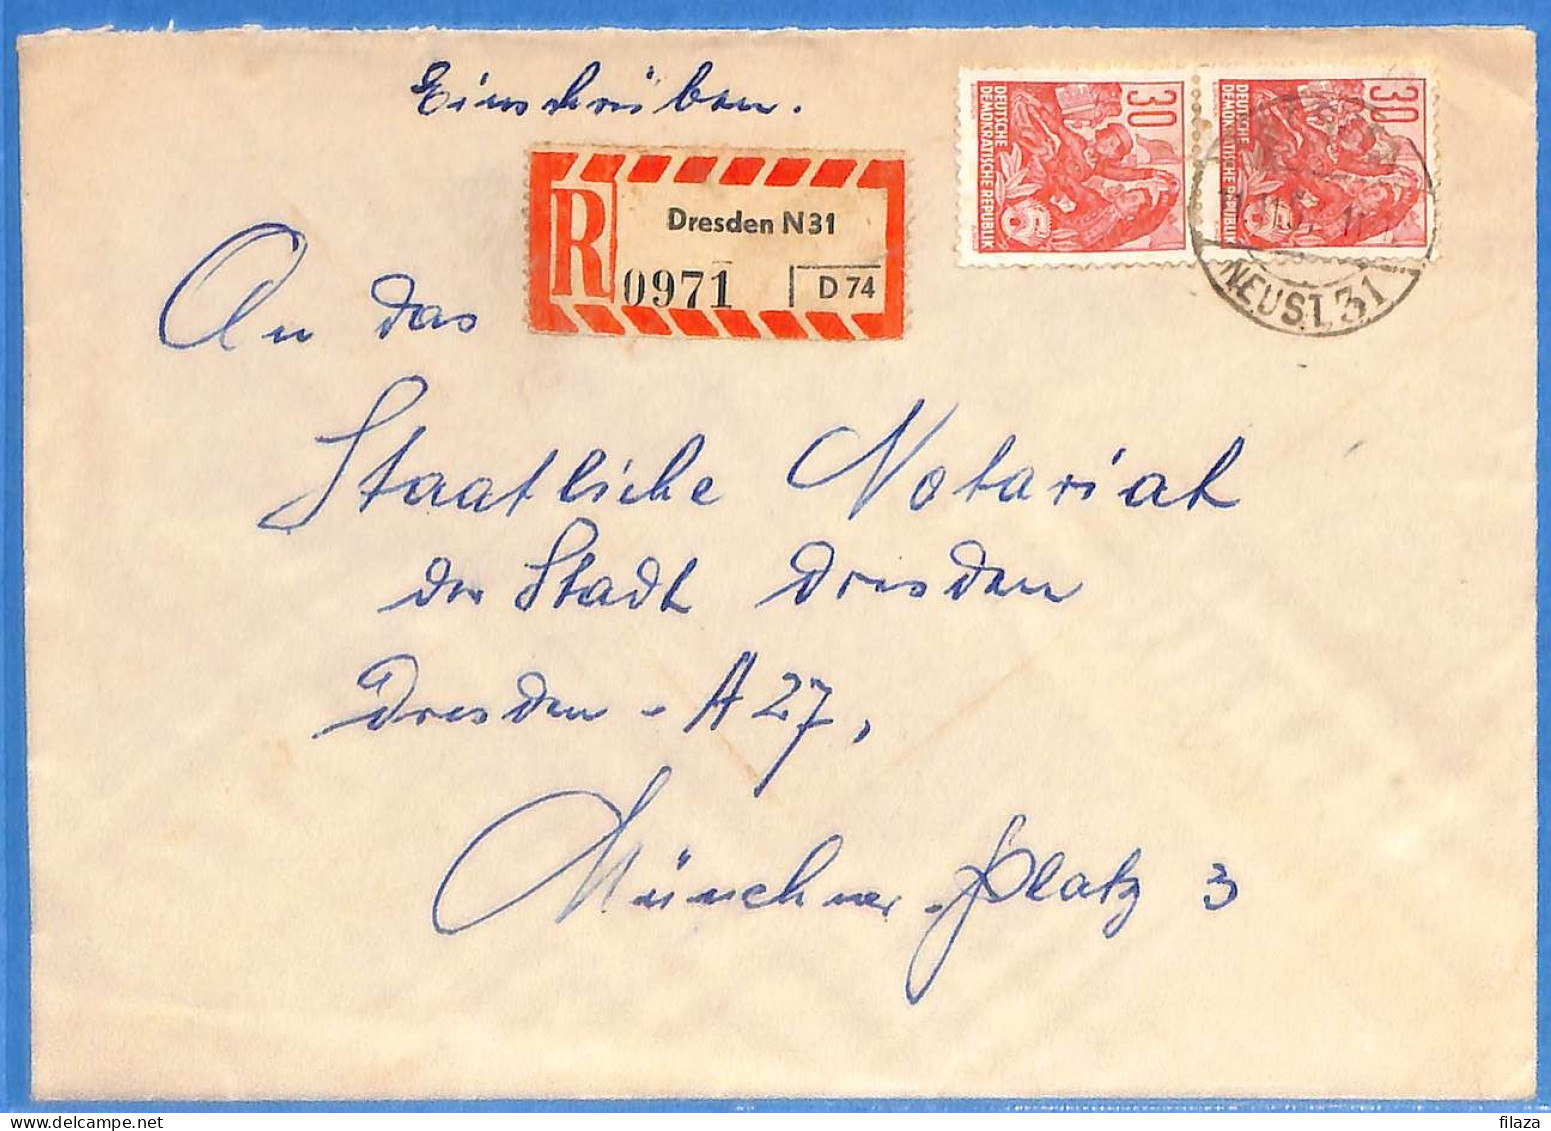 Einschreiben.
R
Dresden N31
0971
D 74
30
DEUTSCHE
DEMOKRATISCHE REPUBLIK
30
DEUTSCHE
DEMOKRATISCHE REPUBLIK
NEUST. 31
An das
Staatliche Notariat
der Stadt Dresden
Dresden - A 27,
Münchner-Platz 3
filaza